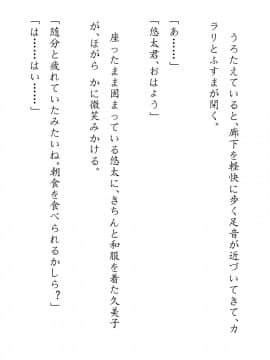 うろたえていると、廊下を軽快に歩く足音が近づいてきて、カ
ラリとふすまが開く。
「あ……」
「悠太君、おはよう」
座ったまま困まっている悠太に、きちんと和服を着た久美子
が、ほがら かに微笑みかける。
「随分と疲れていたみたいね。朝食を食べられるかしら？」
「は……はい……」